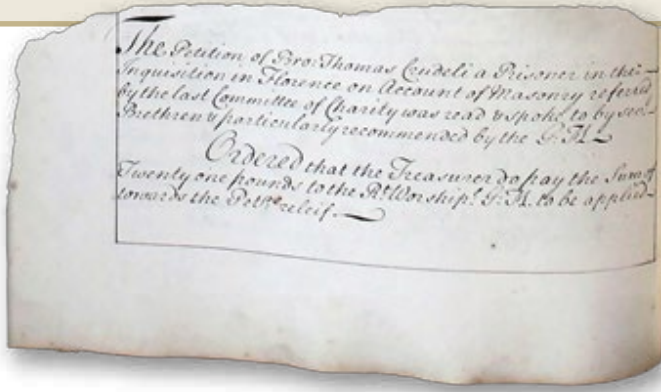 The Petition of Bro: Thomas Crudeli a Prisoner in the
Inquisition in Florence on Account of Masonry referred
by the last Committee of Charity was read & spoke to by sevl
Brethren & particularly recommended by the G:M
Ordered that the Treasurer do pay the Sum of
Twenty one pounds to the Rt Worshipl G:M. to be applied
towards the Petrs releif.